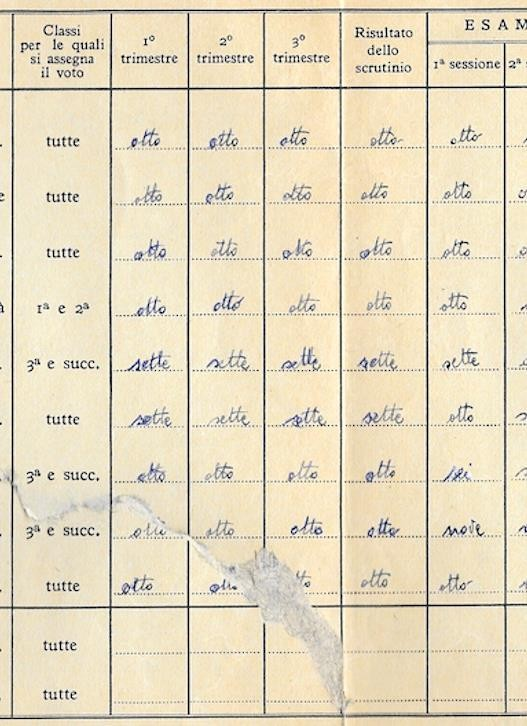 Classi
per le quali
si assegna
il voto
1º
trimestre
2º
trimestre
3º
trimestre
Risultato
dello
scrutinio
ESAM
1ª sessione
2ª
tutte otto otto otto otto otto
tutte otto otto otto otto otto
tutte otto otto otto otto otto
1ª e 2ª otto otto otto otto otto
3ª e succ. sette sette sette sette sette
tutte sette sette sette sette otto
3ª e succ. otto otto otto otto sei
3ª e succ. otto otto otto otto nove
tutte otto otto otto
tutte
tutte